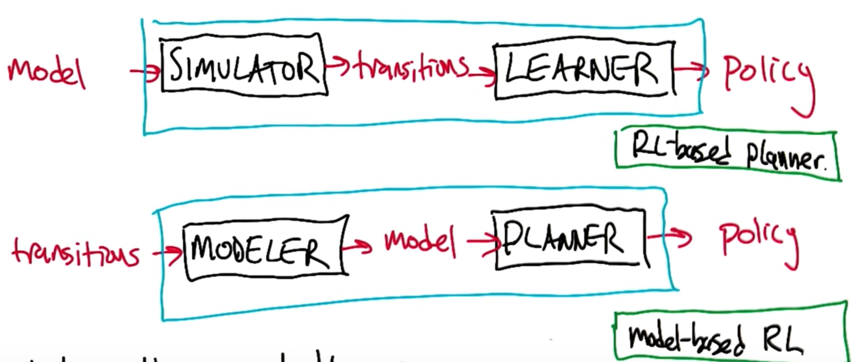 model → SIMULATOR → transitions → LEARNER → policy
RL-based planner.
transitions → MODELER → model → PLANNER → policy
model-based RL